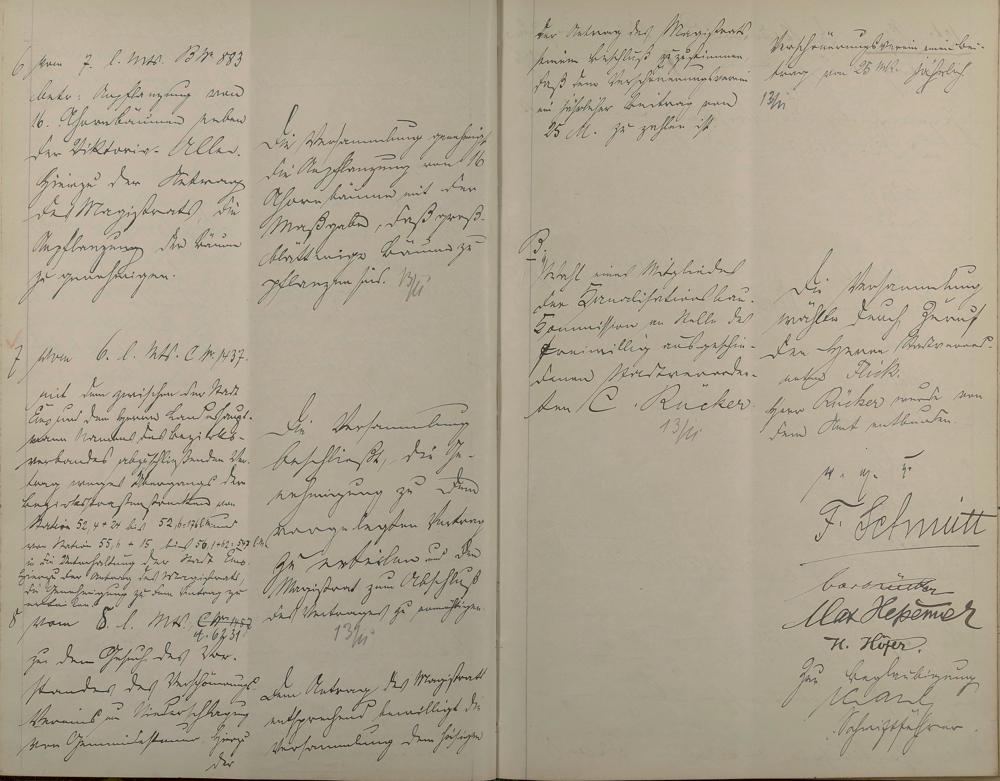 6 Vom 7. l. Mts. B № 883
betr: Anpflanzung von
16 Ahornbäumen neben
der Viktoria-Allee.
Hierzu der Antrag
des Magistrats, die
Anpflanzung der Bäume
zu genehmigen.
Die Versammlung genehmigt
die Anpflanzung von 16
Ahornbäume mit der
Maßgabe, daß groß-
blättrige Bäume zu
pflanzen sind. 13/II
7 Vom 6. l. Mts. C № 1437.
mit dem zwischen der Stadt
Ems und dem Herrn Landeshaupt-
mann Namens des Bezirks-
verbandes abzuschließenden Ver-
trag wegen Übergangs der
Bezirksstraßenstrecken von
Station 52,4 + 24 bis 52,6
von Station 55,6 + 15 bis 56,1
in die Unterhaltung der Stadt Ems.
Hierzu der Antrag des Magistrats,
die Genehmigung zu dem Vertrag zu
erteilen.
Die Versammlung
beschließt, die Ge-
nehmigung zu dem
vorgelegten Vertrag
zu erteilen und den
Magistrat zum Abschluß
des Vertrages zu ermächtigen.
13/II
8 Vom 8. l. Mts.
zu dem Gesuch des Vor-
standes des Verschönerungs
Vereins um Niederschlagung
von Gemeindesteuer. Hierzu
der
Dem Antrag des Magistrats
entsprechend bewilligt die
Versammlung dem hiesigen
der Antrag des Magistrats,
seinem Beschluß zuzustimmen
daß dem Verschönerungsverein
ein jährlicher Beitrag von
25 M. zu zahlen ist.
Verschönerungsverein einen Bei-
trag von 25 Mk. jährlich
13/II
B.
Wahl eines Mitgliedes
der Kanalisationsbau-
Kommission an Stelle des
freiwillig ausgeschie-
denen Stadtverordne-
ten C. Rücker.
13/II
Die Versammlung
wählte durch Zuruf
den Herrn Stadtverord-
neten Flick.
Herr Rücker wurde von
dem Amt entbunden.
v. g. u.
F. Schmitt
Max Heßemer
H. Höfer.
Zur Beglaubigung
Schriftführer